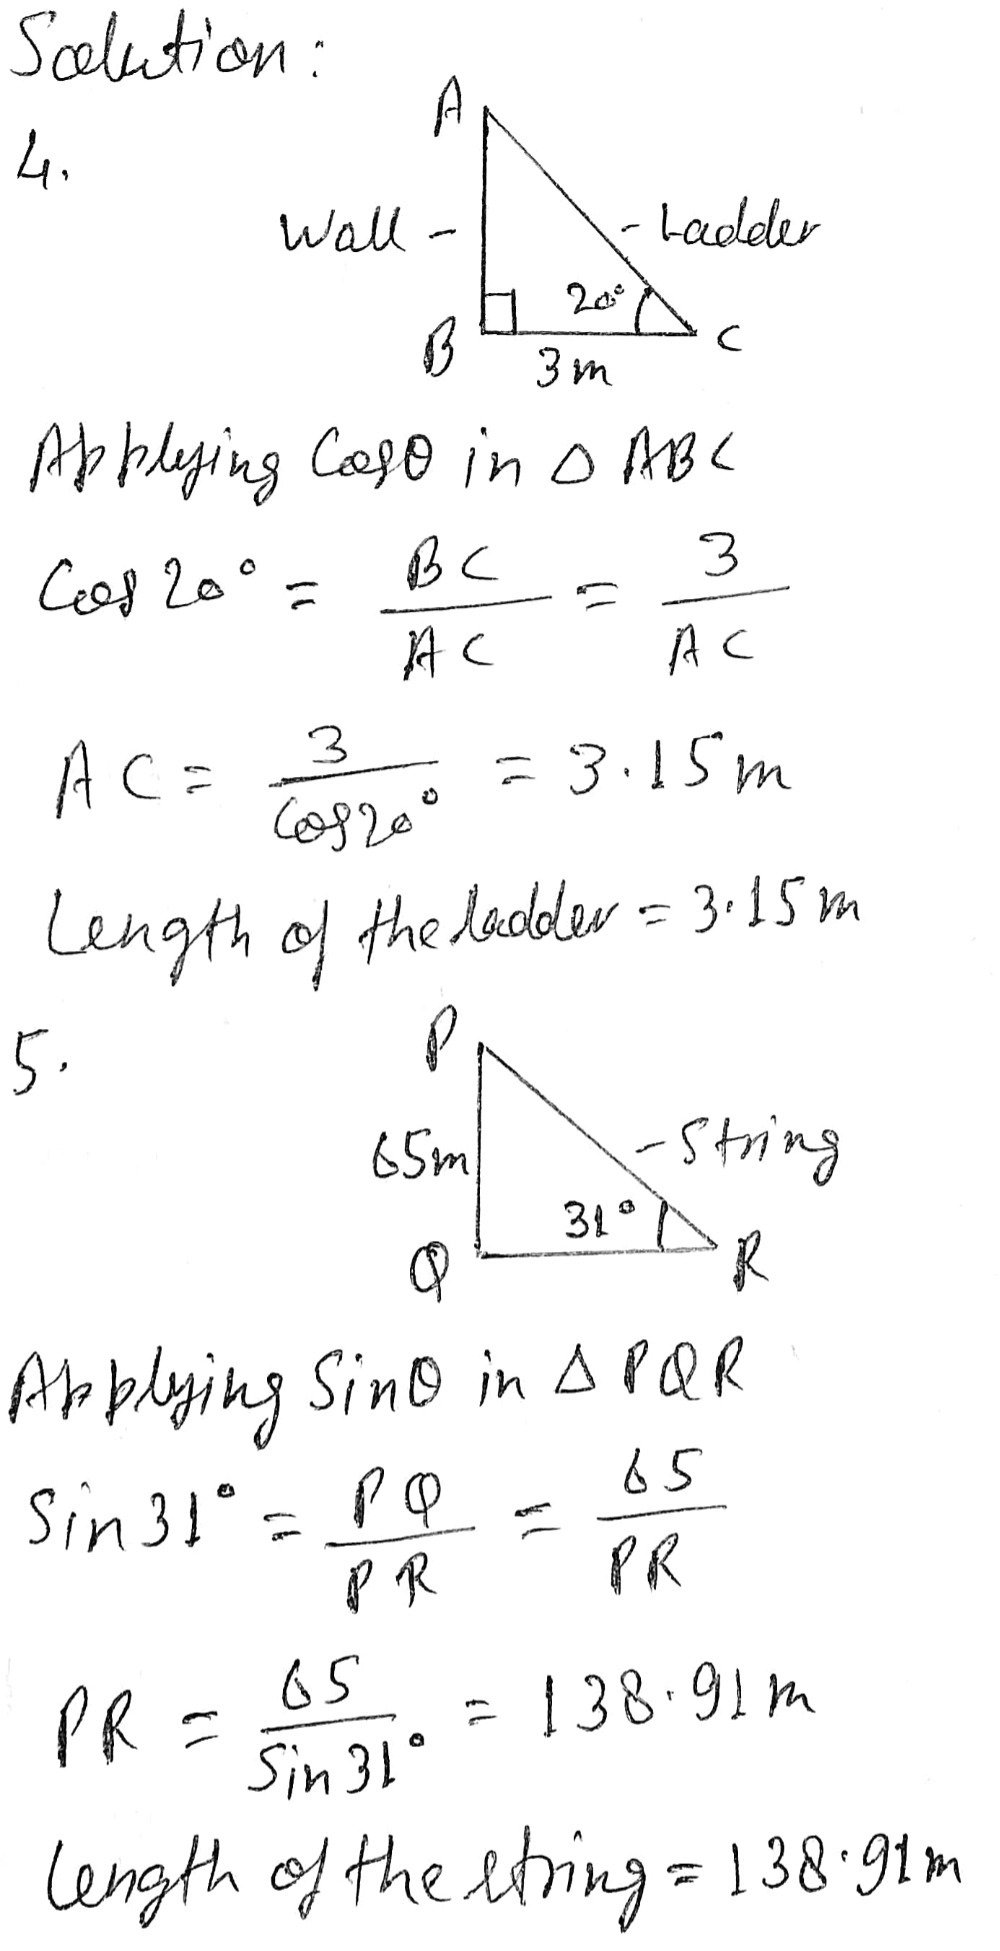 Solution:
4.
A
Wall - - Ladder
20°
B C
3m
Applying Cosθ in △ ABC
Cos 20° = BC/AC = 3/AC
AC = 3/Cos20° = 3.15m
Length of the ladder = 3.15m
5.
P
65m - String
31°
Q R
Applying Sinθ in △ PQR
Sin 31° = PQ/PR = 65/PR
PR = 65/Sin31° = 138.91m
Length of the string = 138.91m